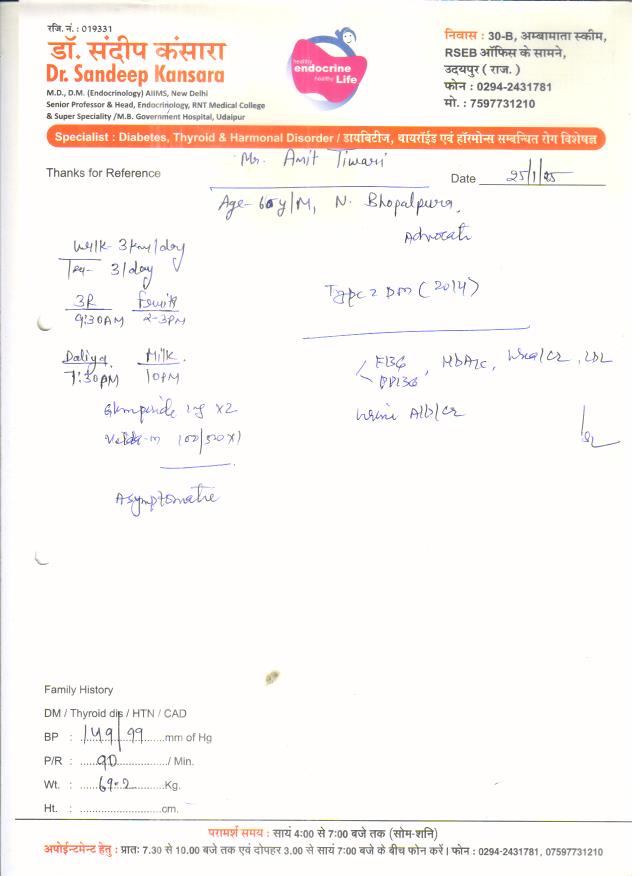 रजि. नं. : 019331
डॉ. संदीप कंसारा
Dr. Sandeep Kansara
M.D., D.M. (Endocrinology) AIIMS, New Delhi
Senior Professor & Head, Endocrinology, RNT Medical College
& Super Speciality /M.B. Government Hospital, Udaipur
healthy
endocrine
healthy Life
निवास : 30-B, अम्बामाता स्कीम,
RSEB ऑफिस के सामने,
उदयपुर ( राज. )
फोन : 0294-2431781
मो. : 7597731210
Specialist : Diabetes, Thyroid & Harmonal Disorder / डायबिटीज, थायरॉईड एवं हॉरमोन्स सम्बन्धित रोग विशेषज्ञ
Mr. Amit Tiwari
Thanks for Reference
Date 25/1/25
Age- 60y/M, N. Bhopalpura,
Advocate
Walk- 3km/day
Tea- 3/day
3R Fruit
9:30AM 2-3PM
Type 2 DM (2014)
Daliya Milk
7:30PM 10PM
FBG, HbA1c, Urea/Cr, LDL
PPBG
Glimperide 1mg x2
Urine Alb/Cr
100/500x1
Asymptomatic
Family History
DM / Thyroid dis / HTN / CAD
BP : 149/99 mm of Hg
P/R : 90 / Min.
Wt. : 69.2 Kg.
Ht. : cm.
परामर्श समय : सायं 4:00 से 7:00 बजे तक (सोम-शनि)
अपोईन्टमेन्ट हेतु : प्रातः 7.30 से 10.00 बजे तक एवं दोपहर 3.00 से सायं 7:00 बजे के बीच फोन करें। फोन : 0294-2431781, 07597731210